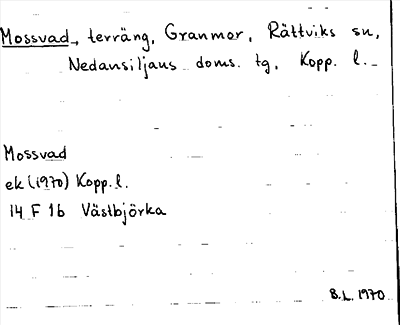 Mossvad, terräng, Granmor, Rättviks sn,
Nedansiljans doms. tg, Kopp. l.
Mossvad
ek (1970) Kopp. l.
14 F 1b Västbjörka
B.L. 1970